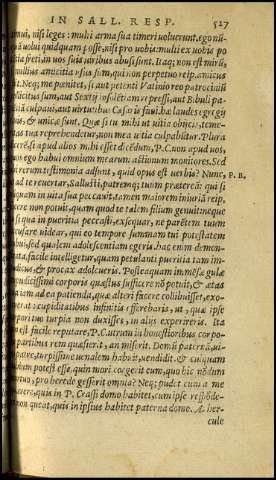 IN SALL. RESP. 527
timui, nisi leges: multi arma sua timeri voluerunt, ego nũ-
quã volui quidquam posse, nisi pro vobis: multi ex vobis po
tẽtia freti, in vos suis viribus abusi sunt. Itaq; non est mirũ,
multis amicitia usus sim, qui non perpetuo reip. amicus
fuit. Neq; me pœnitet, si aut petenti Vatinio reo patrociniũ
pollicitus sum, aut Sextij insolentiam repressi, aut Bibuli pa-
tientiã culpaui, aut virtutibus Cæsaris faui. hæ laudes egregij
ciuis, & unicæ sunt. Quæ si tu mihi ut vitia obijcis, teme-
ritas tua reprehendetur, non mea vitia culpabitur. Plura
dicerẽ si apud alios mihi esset dicẽdum, P.C. non apud vos,
quos ego habui omnium mearum actionum monitores. Sed
rerum testimonia adsunt, quid opus est verbis? Nunc, P. B.
ut ad te reuertar, Sallusti, patremq; tuum præterea: qui si
numquam in vita sua peccauit, tamen maiorem iniuriã reip.
facere non potuit, quam quod te talem filium genuit neque
si qua in pueritia peccasti, exsequar, ne parẽtem tuum
accusare videar, qui eo tempore summam tui potestatem
habuit, sed qualem adolescentiam egeris. hac enim demon-
strata, facile intelligetur, quam petulanti pueritia tam im-
pudicus, & procax adoleueris. Posteaquam immẽsæ gulæ
impudicissimi corporis quæstus sufficere nõ potuit, & ætas
tua iam ad ea patienda, quæ alteri facere collibuisset, exo-
leuerat: cupiditatibus infinitis efferebaris, ut, quæ ipse
corpori tuo turpia non duxisses, in alijs experireris. Ita
non est facile reputare, P.C. utrum inhonestioribus corpo-
ris partibus rem quæsierit, an amiserit. Domũ paternã, vi-
uo patre, turpissime venalem habuit, vendidit. & cuiquam
dubium potest esse, quin mori coegerit eum, quo hic nõdum
mortuo, pro herede gesserit omnia? Neq; pudet eum a me
quærere, quis in P. Crassi domo habitet, cum ipse respõde-
re non queat, quis in ipsius habitet paterna domo. At her-
cule